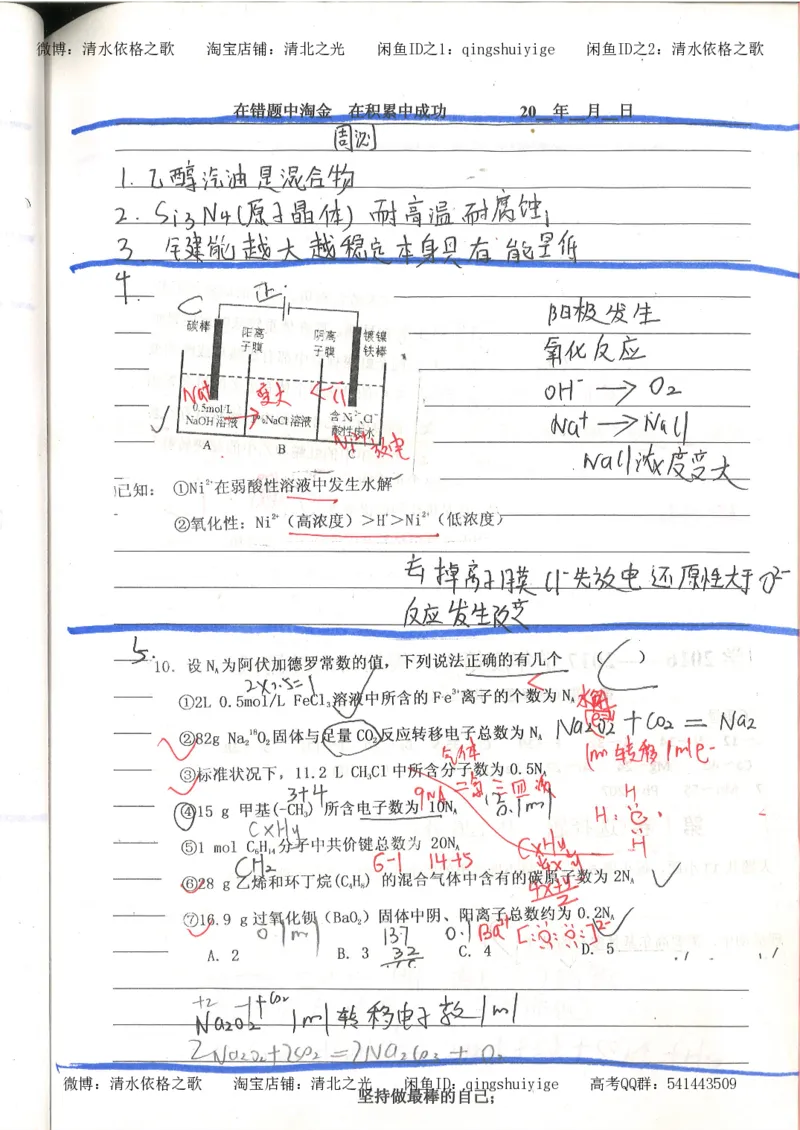 微博：清水依格之歌 淘宝店铺：清北之光 闲鱼ID之1：qingshuiyige 闲鱼ID之2：清水依格之歌
在错题中淘金 在积累中成功 20__年__月__日
周测
1. 乙醇汽油是混合物
2. Si3N4(原子晶体) 耐高温 耐腐蚀
3. 键能越大越稳定本身具有能量低
4
C 正
碳棒 阳离子膜 阴离子膜 镀镍铁棒
Na+ 变大 ←Cl
0.5mol/L NaOH溶液 1%NaCl溶液 含Ni²⁺,Cl⁻酸性废水
A B C
Ni2+放电
阳极发生
氧化反应
OH⁻ → O2
Na+ → NaCl
NaCl浓度变大
已知： ①Ni²⁺在弱酸性溶液中发生水解
②氧化性：Ni²⁺（高浓度）＞H⁺＞Ni²⁺（低浓度）
去掉离子膜 Cl⁻先放电 还原性大于O²⁻
反应发生改变
5.
10. 设 N_A 为阿伏加德罗常数的值，下列说法正确的有几个 （ C ）
2×0.5=1
①2L 0.5mol/L FeCl₃溶液中所含的 Fe³⁺离子的个数为 N_A 水解
②82g Na₂¹⁸O₂固体与足量 CO₂反应转移电子总数为 N_A Na2O2+CO2=Na2
1m 转移 1ml e-
气体
③标准状况下，11.2 L CH₃Cl 中所含分子数为 0.5N_A
3+4 9NA 二氯三四液
④15 g 甲基(-CH₃) 所含电子数为 10N_A
CxHy
⑤1 mol C₆H₁₄分子中共价键总数为 20N_A
CH2 6-1 14+5 CxHy 4x y
4x+y
2
⑥28 g 乙烯和环丁烷(C₄H₈) 的混合气体中含有的碳原子数为 2N_A
⑦16.9 g 过氧化钡（BaO₂）固体中阴、阳离子总数约为 0.2N_A
0.1ml 137 0.1 Ba2+ [:O:O:]2-
32
A. 2 B. 3 C. 4 D. 5
+2 -1 +CO2
Na2O2 1ml 转移电子数 1ml
2Na2O2+2CO2=2Na2CO3+O2
微博：清水依格之歌 淘宝店铺：清北之光 闲鱼ID：qingshuiyige 高考QQ群：541443509
坚持做最棒的自己；